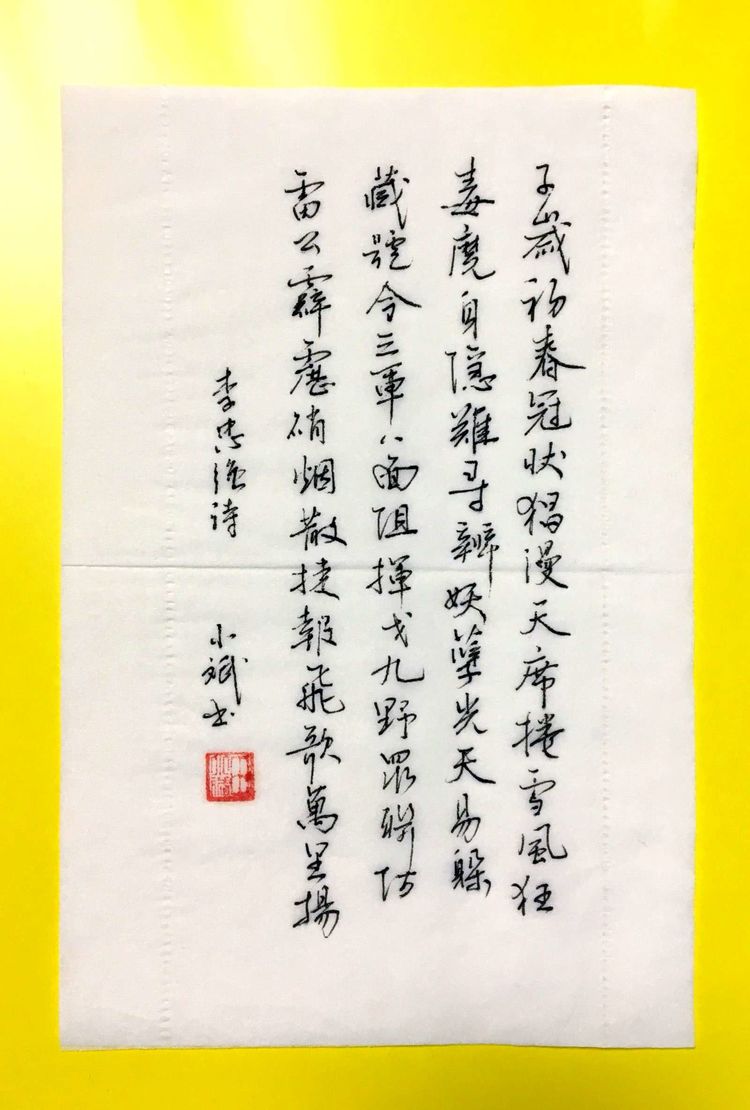 子歲初春冠狀猖漫天席捲雪風狂
毒魔身隱難尋辨妖孽光天易躲
藏號令三軍八面阻揮戈九野眾聯防
雷公霹靂硝烟散捷報飛歌萬里揚
李忠強詩
小斌书